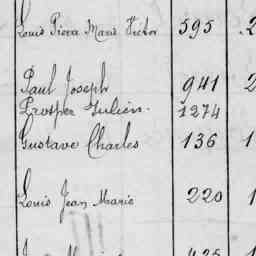 Louis Pierre Marie Victor 595 2
Paul Joseph 941 2
Prosper Julien. 1274
Gustave Charles 136 1
Louis Jean Marie 220 1
425 1